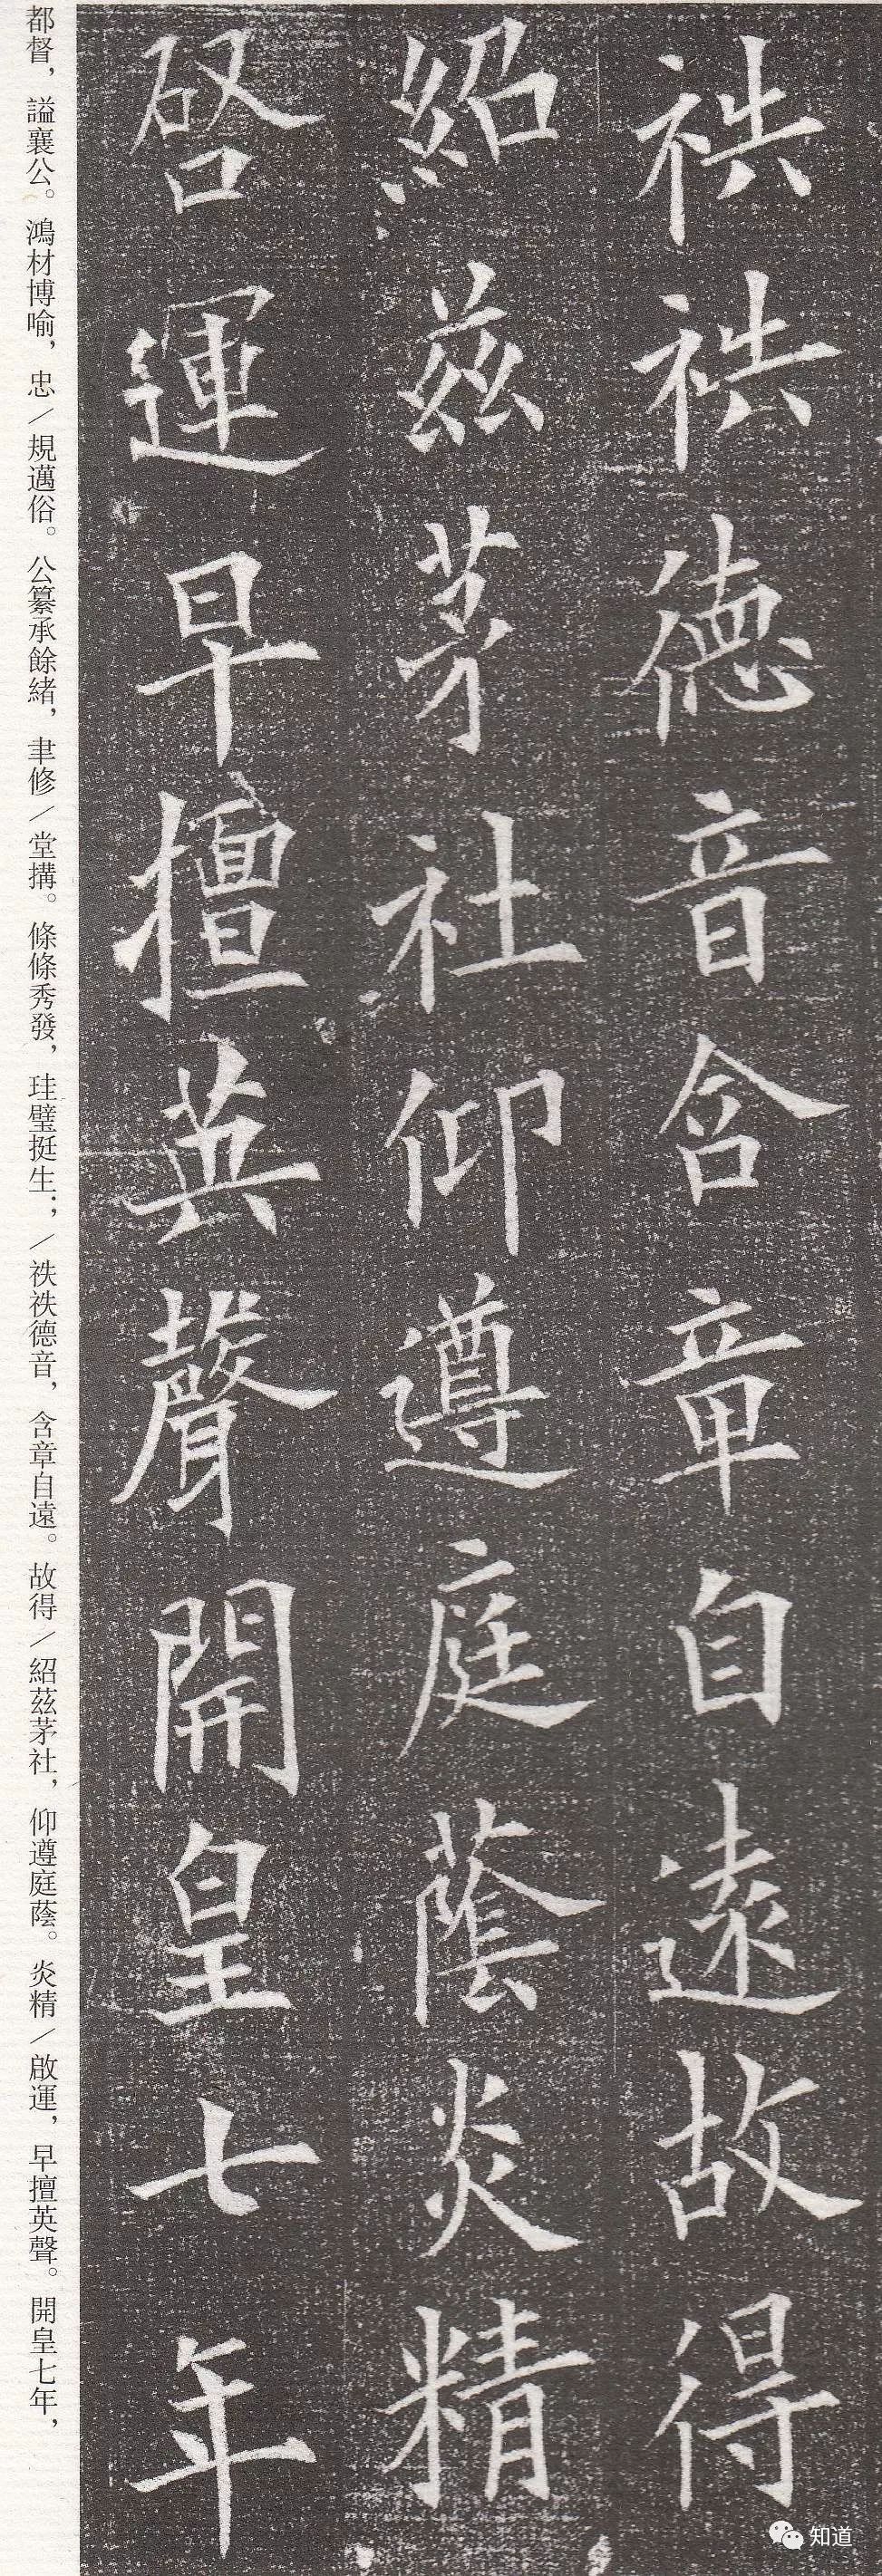 袟袟德音含章自遠故得
紹茲茅社仰遵庭蔭炎精
啓運早擅英聲開皇七年
都督，謚襄公。鴻材博喻，忠／規邁俗。公纂承餘緒，聿修／堂搆。條條秀發，珪璧挺生；／袟袟德音，含章自遠。故得／紹茲茅社，仰遵庭蔭。炎精／啟運，早擅英聲。開皇七年，
知道